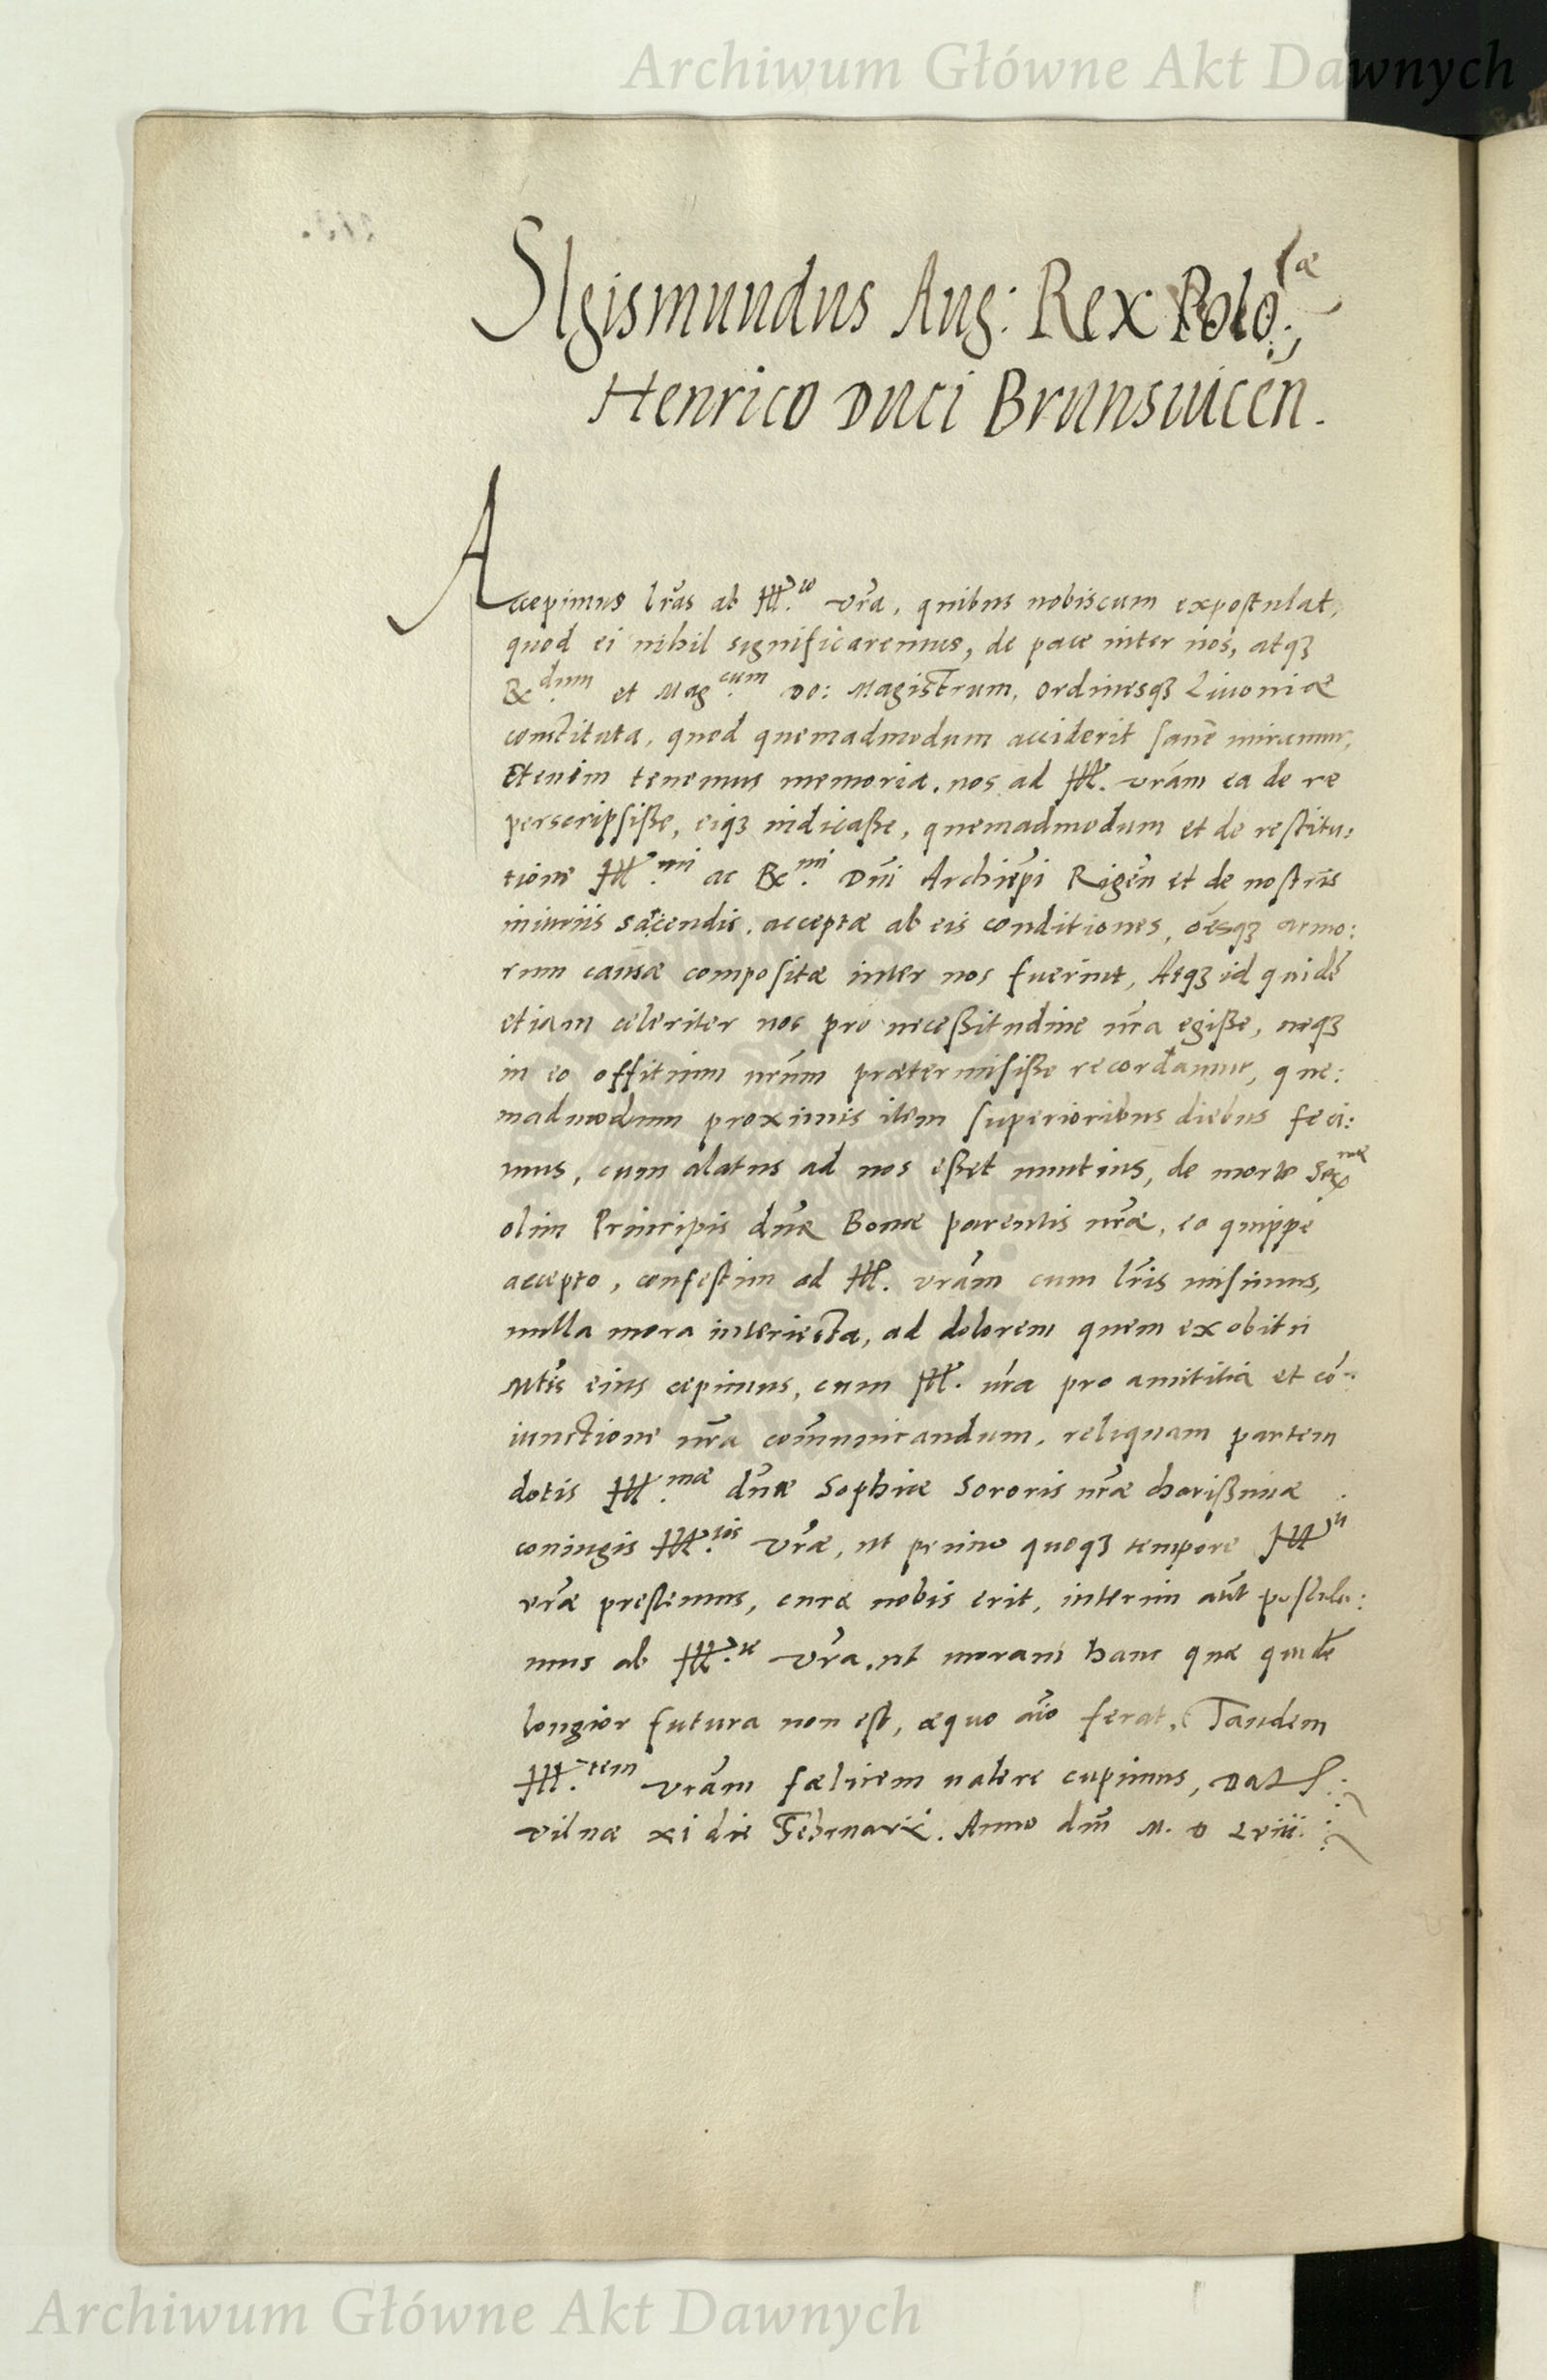 Archiwum Główne Akt Dawnych
SIgismundus Aug: Rex Polo:æ
Henrico Duci Brunsuicen̄.
Accepimus lr̃as ab Ill. vr̃a, quibus nobiscum expostulat,
quod ei nihil significaremus, de pace inter nos, atqꝫ
R. dum et Mag.cum Do: Magistrum, Ordinesqꝫ Liuoniæ
constituta, quod quemadmodum acciderit sane miramur,
Etenim tenemus memoria, nos ad Ill. vrãm ea de re
perscripsiße, eiqꝫ indicaße, quemadmodum et de restitu:
tione Ill.mi ac R.mi Dñi Archiep̃i Rigeñ et de nostris
iniuriis sarciendis, acceptæ ab eis conditiones, oẽsqꝫ armo:
rum causæ compositæ inter nos fuerint, Atqꝫ id quidẽ
etiam celeriter nos pro neceßitudine nr̃a egiße, neqꝫ
in eo offitium nrũm prætermisiße recordamur, que:
madmodum proximis item superioribus diebus feci:
mus, cum alatus ad nos eßet nuntius, de morte Ser.mæ
olim Principis dñæ Bonæ parentis nr̃æ, eo quippe
accepto, confestim ad Ill. vrãm cum lr̃is misimus,
nulla mora interiecta, ad dolorem quem ex obitu
Mtis eius cepimus, cum Ill. vr̃a pro amititia et cõ:
iunctione nr̃a com̃unicandum, reliquam partem
dotis Ill.mæ dñæ Sophiæ Sororis nr̃æ charißimæ
coniugis Ill.tis vr̃æ, ut primo quoqꝫ tempore Ill.ti
vr̃æ prestemus, curæ nobis erit, interim aũt postula:
mus ab Ill.te vr̃a, ut moram hanc quæ quidẽ
longior futura non est, æquo aĩo ferat, Tandem
Ill.tem vrãm fælicem ualere cupimus, Dat
vilnæ xi die Februarii. Anno dñi M. D Lviii.
Archiwum Główne Akt Dawnych